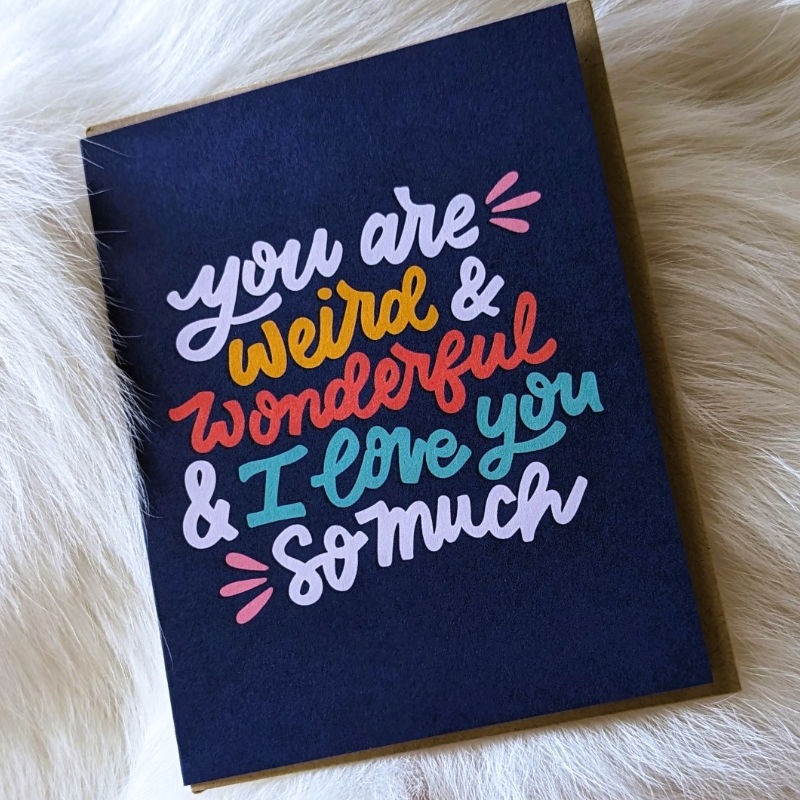 you are
weird &
wonderful
& I love you
so much